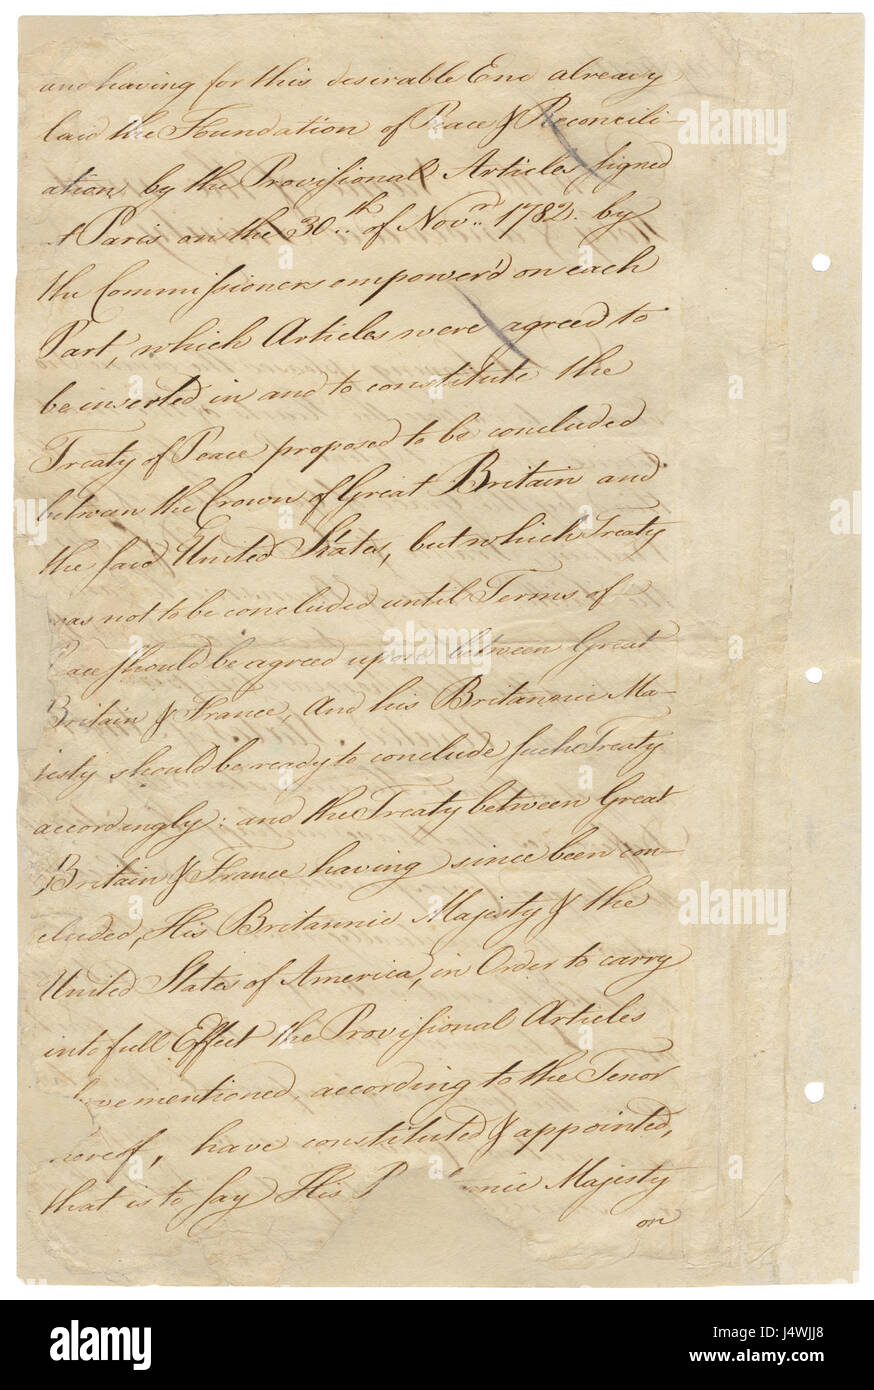 and having for this desirable End already
laid the Foundation of Peace & Reconcili-
ation by the Provisional Articles signed
at Paris on the 30.th of Nov.r 1782. by
the Commissioners empower'd on each
Part, which Articles were agreed to
be inserted in and to constitute the
Treaty of Peace proposed to be concluded
between the Crown of Great Britain and
the said United States, but which Treaty
was not to be concluded until Terms of
Peace should be agreed upon between Great
Britain & France, And his Britannic Ma-
jesty should be ready to conclude such Treaty
accordingly: and the Treaty between Great
Britain & France having since been con-
cluded, His Britannic Majesty & the
United States of America, in Order to carry
into full Effect the Provisional Articles
ve mentioned, according to the Tenor
ereof, have constituted & appointed,
that is to say His B nnic Majesty
on
alamy
Image ID: J4WJJ8
www.alamy.com